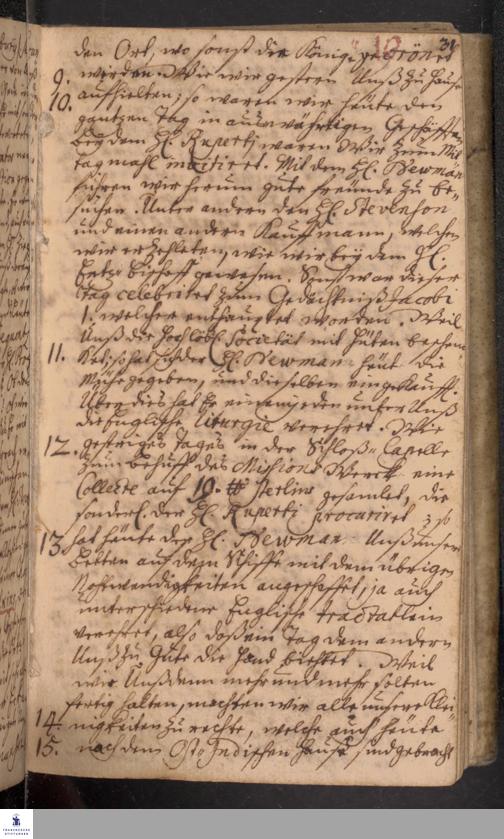 31
den Ort, wo sonst die Könige gecrönet
9. werden. Wie wir gestern Unß zu Hause
10. aufhielten; so waren wir heute den
gantzen Tag in auswärtigen Geschäfften
bey dem H. Ruperti waren Wir zum Mit
tagmahl invitiret. Mit dem H. Newman
fuhren wir herum gute freunde zu be-
suchen. Unter andern den H. Stevenson
und einen andern Kauffmann, welchen
wir erzehleten, wie wir bey dem H.
Ertz Bischoff gewesen. Sonst war dieser
Tag celebriret zum Gedächtniß Jacobi
1. welcher enthauptet worden. Weil
Unß die Hochlöbl. Societät mit Hüten beschen
11. so hat sich der H. Newman heut die
Mühe gegeben, und dieselben eingekaufft.
Uber dies hat Er einem jeden unter Unß
die Englische Liturgie verehret. Wie
12. gestriges Tages in der Schloß-Capelle
zum behuff des Missions Werck eine
Collecte auf 10. Sterling gesamlet, die
sonderl. der H. Ruperti procuriret; so
13. hat heute der H. Newman Unß unser
Betten auf dem Schiffe mit dem übrigen
Nothwendigkeiten angeschaffet; ja auch
unterschiedene Englische tractätlein
verehret, also daß ein Tag dem andern
Unß zu Gute die Hand biethet. Weil
wir Unß denn mehr und mehr solten
fertig halten, machten wir alle unsere Klei-
14. nigkeiten zu rechte, welche auch heute
15. nach dem Ost-Indischen Hause sind gebracht
FRANCKESCHE
STIFTUNGEN